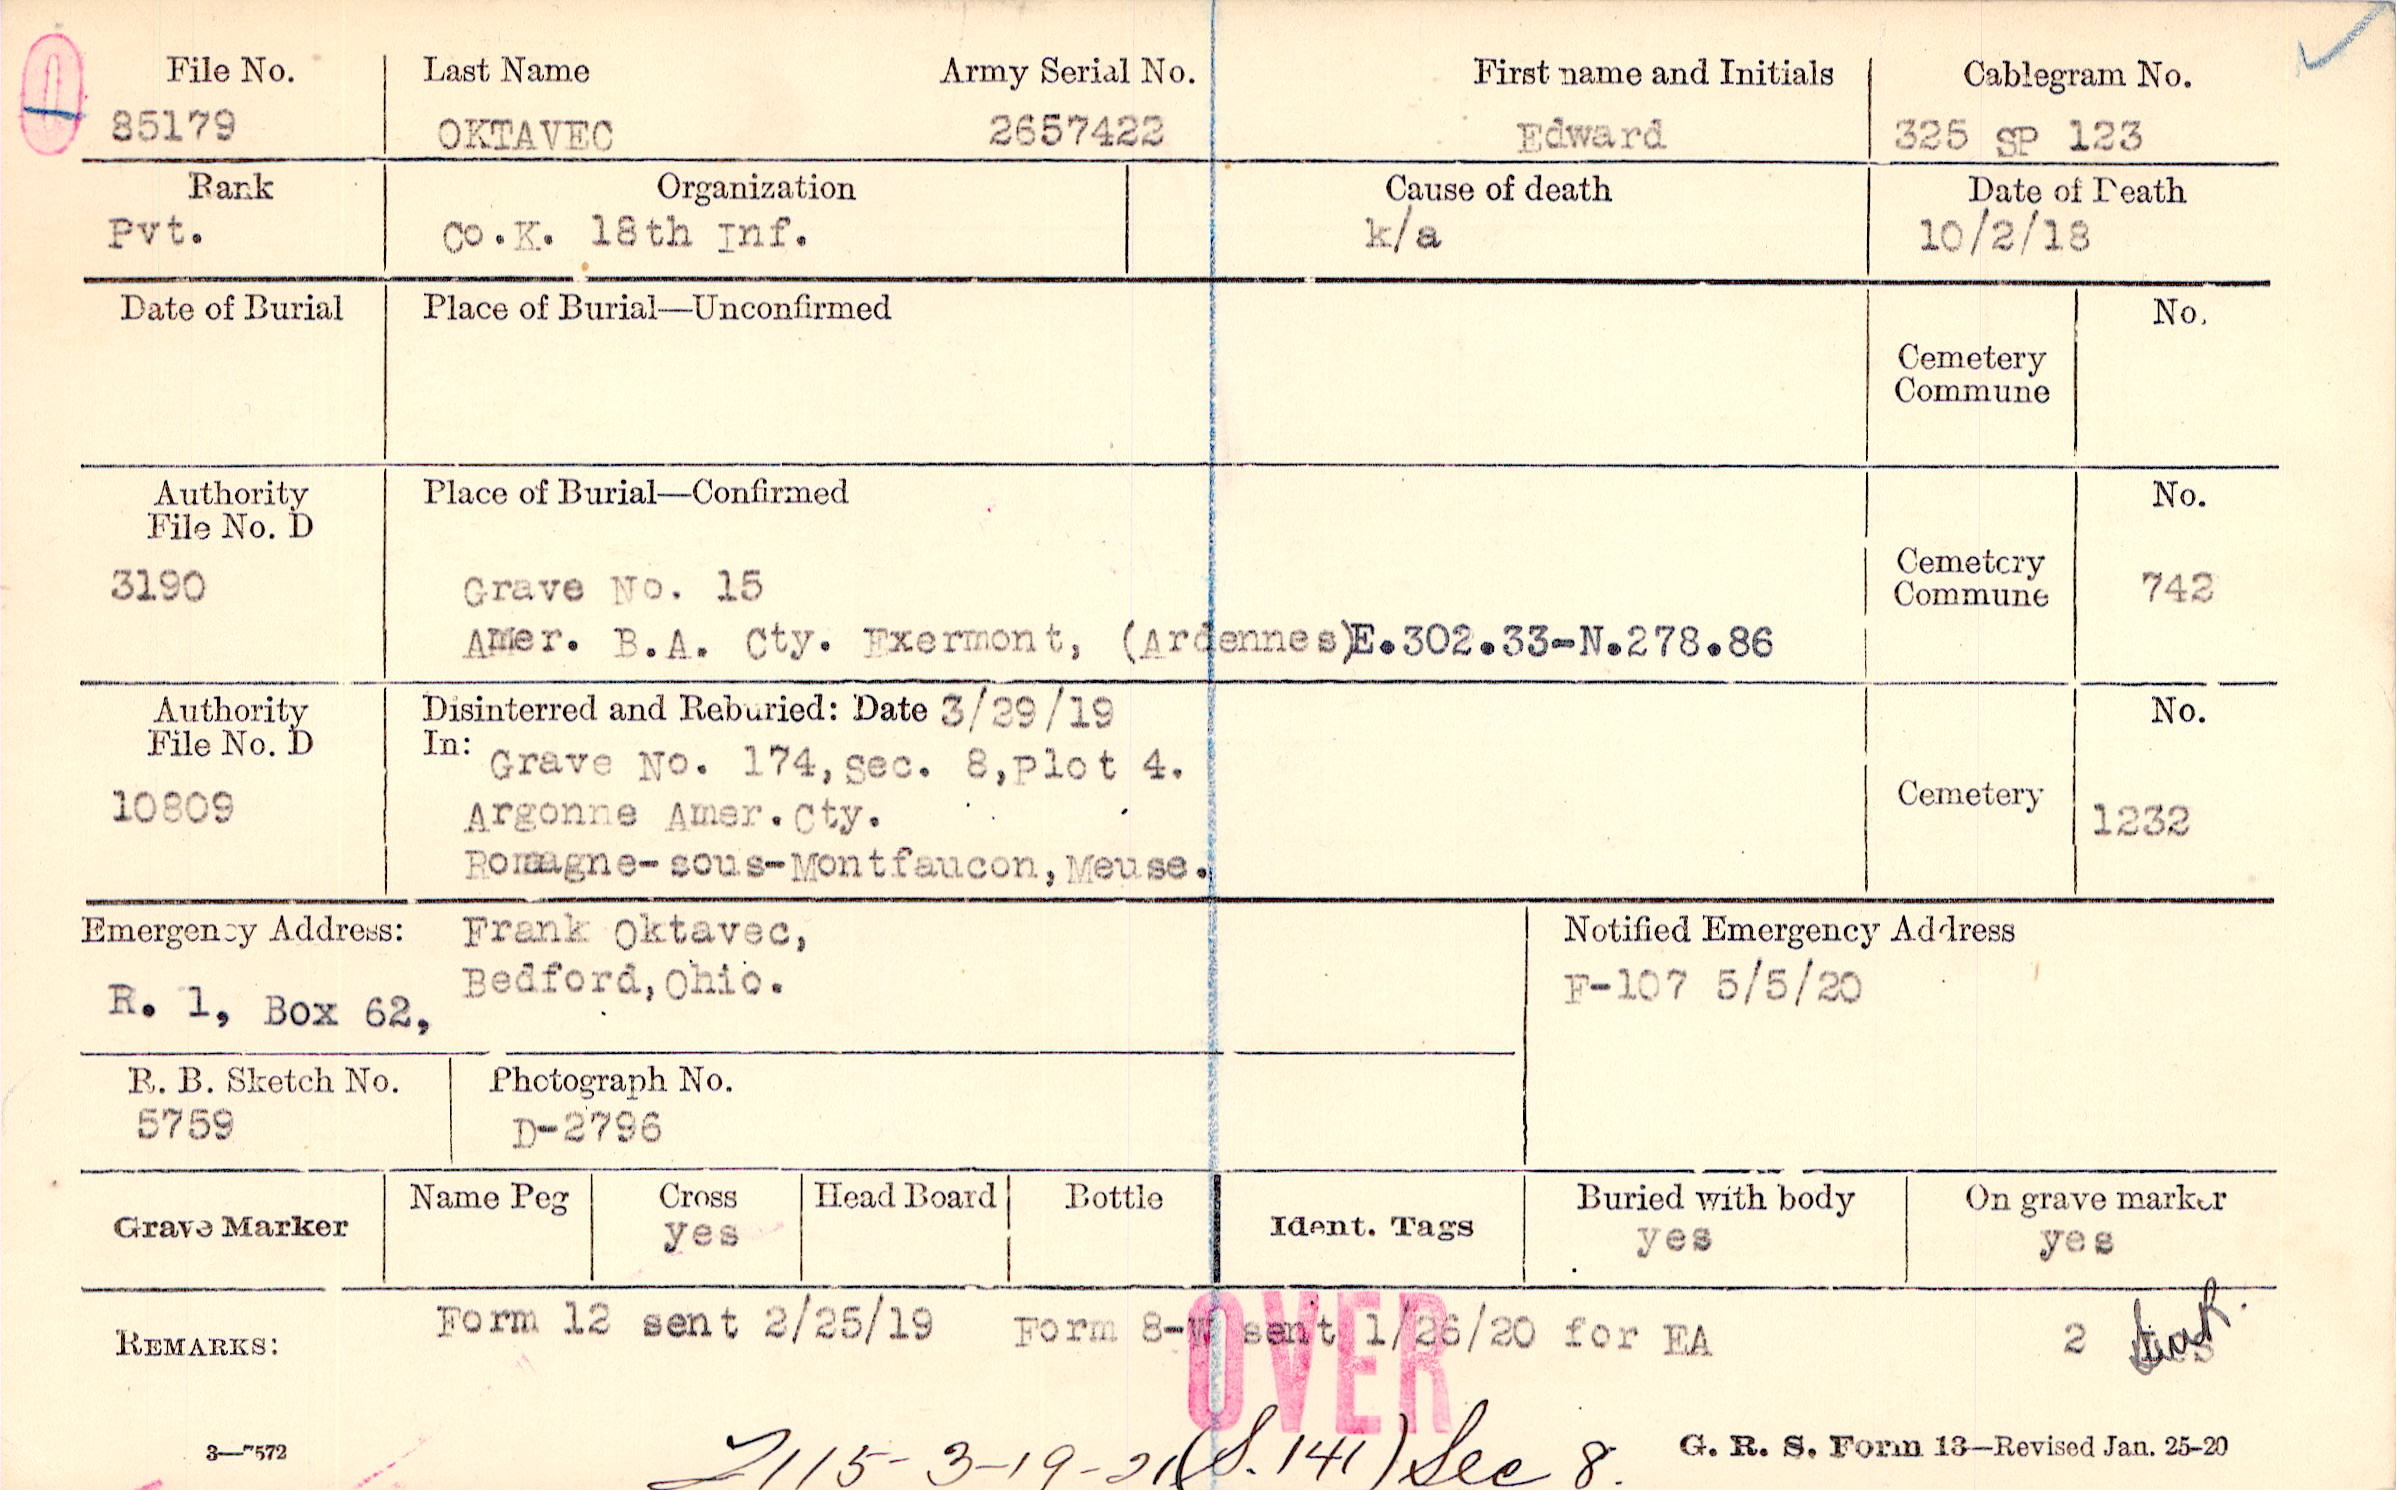 File No. Last Name Army Serial No. First name and Initials Cablegram No.
85179 OKTAVEC 2657422 Edward 325 SP 123
Rank Organization Cause of death Date of Death
Pvt. Co.K. 18th Inf. k/a 10/2/18
Date of Burial Place of Burial—Unconfirmed No.
Cemetery
Commune
Authority Place of Burial—Confirmed No.
File No. D
Cemetery
3190 Grave No. 15 Commune 742
Amer. B.A. Cty. Exermont, (Ardennes)E.302.33-N.278.86
Authority Disinterred and Reburied: Date 3/29/19 No.
File No. D In:
Grave No. 174,Sec. 8,Plot 4.
10809 Argonne Amer.Cty. Cemetery 1232
Romagne-sous-Montfaucon,Meuse.
Emergency Address: Frank Oktavec, Notified Emergency Address
Bedford,Ohio. F-107 5/5/20
R. 1, Box 62,
R. B. Sketch No. Photograph No.
5759 D-2796
Grave Marker Name Peg Cross Head Board Bottle Ident. Tags Buried with body On grave marker
yes yes yes
REMARKS: Form 12 sent 2/25/19 Form 8-W sent 1/26/20 for EA 2
OVER
3—7572 2115-3-19-21(S.141) Sec 8. G. R. S. Form 13—Revised Jan. 25-20